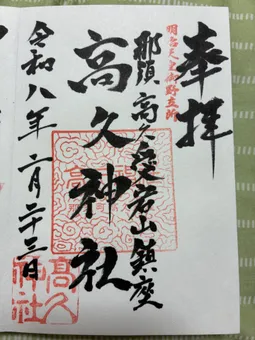 奉拝
明治天皇御野立所
那須高久愛宕山鎮座
高久神社
令和八年二月二十三日
髙久
神社